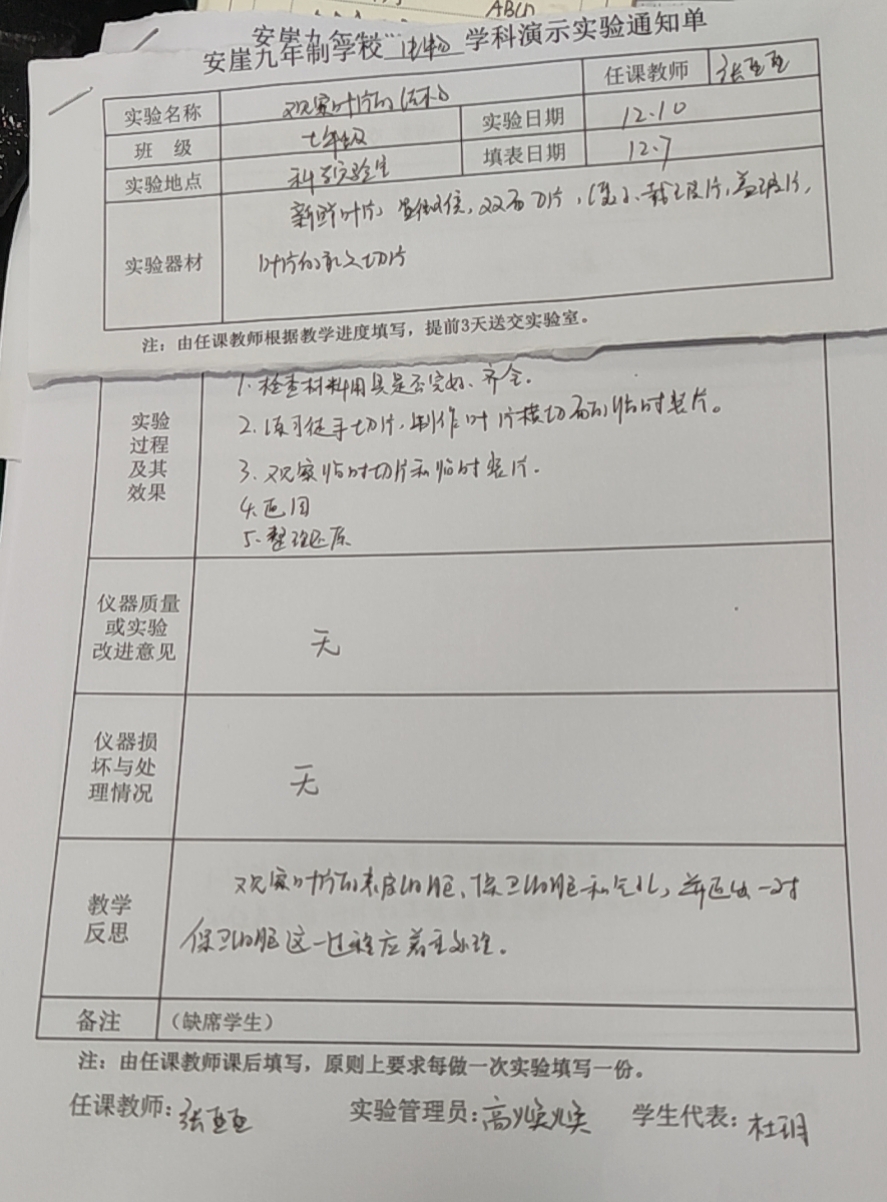 ABCD
安崖九年
安崖九年制学校 生物 学科演示实验通知单
实验名称 观察叶片的结构 任课教师 张亚亚
班 级 七年级 实验日期 12.10
实验地点 科学实验室 填表日期 12.7
实验器材
新鲜叶片，显微镜，双面刀片，镊子、载玻片，盖玻片，
叶片的永久切片
注：由任课教师根据教学进度填写，提前3天送交实验室。
实验
过程
及其
效果
1.检查材料用具是否完好、齐全。
2.练习徒手切片，制作叶片横切面的临时装片。
3.观察临时切片和临时装片.
4.画图
5.整理还原
仪器质量
或实验
改进意见
无
仪器损
坏与处
理情况
无
教学
反思
观察叶片的表皮细胞、保卫细胞和气孔，并画出一对
保卫细胞这一过程应着重处理。
备注 （缺席学生）
注：由任课教师课后填写，原则上要求每做一次实验填写一份。
任课教师：张亚亚 实验管理员：高焕焕 学生代表：杜玥